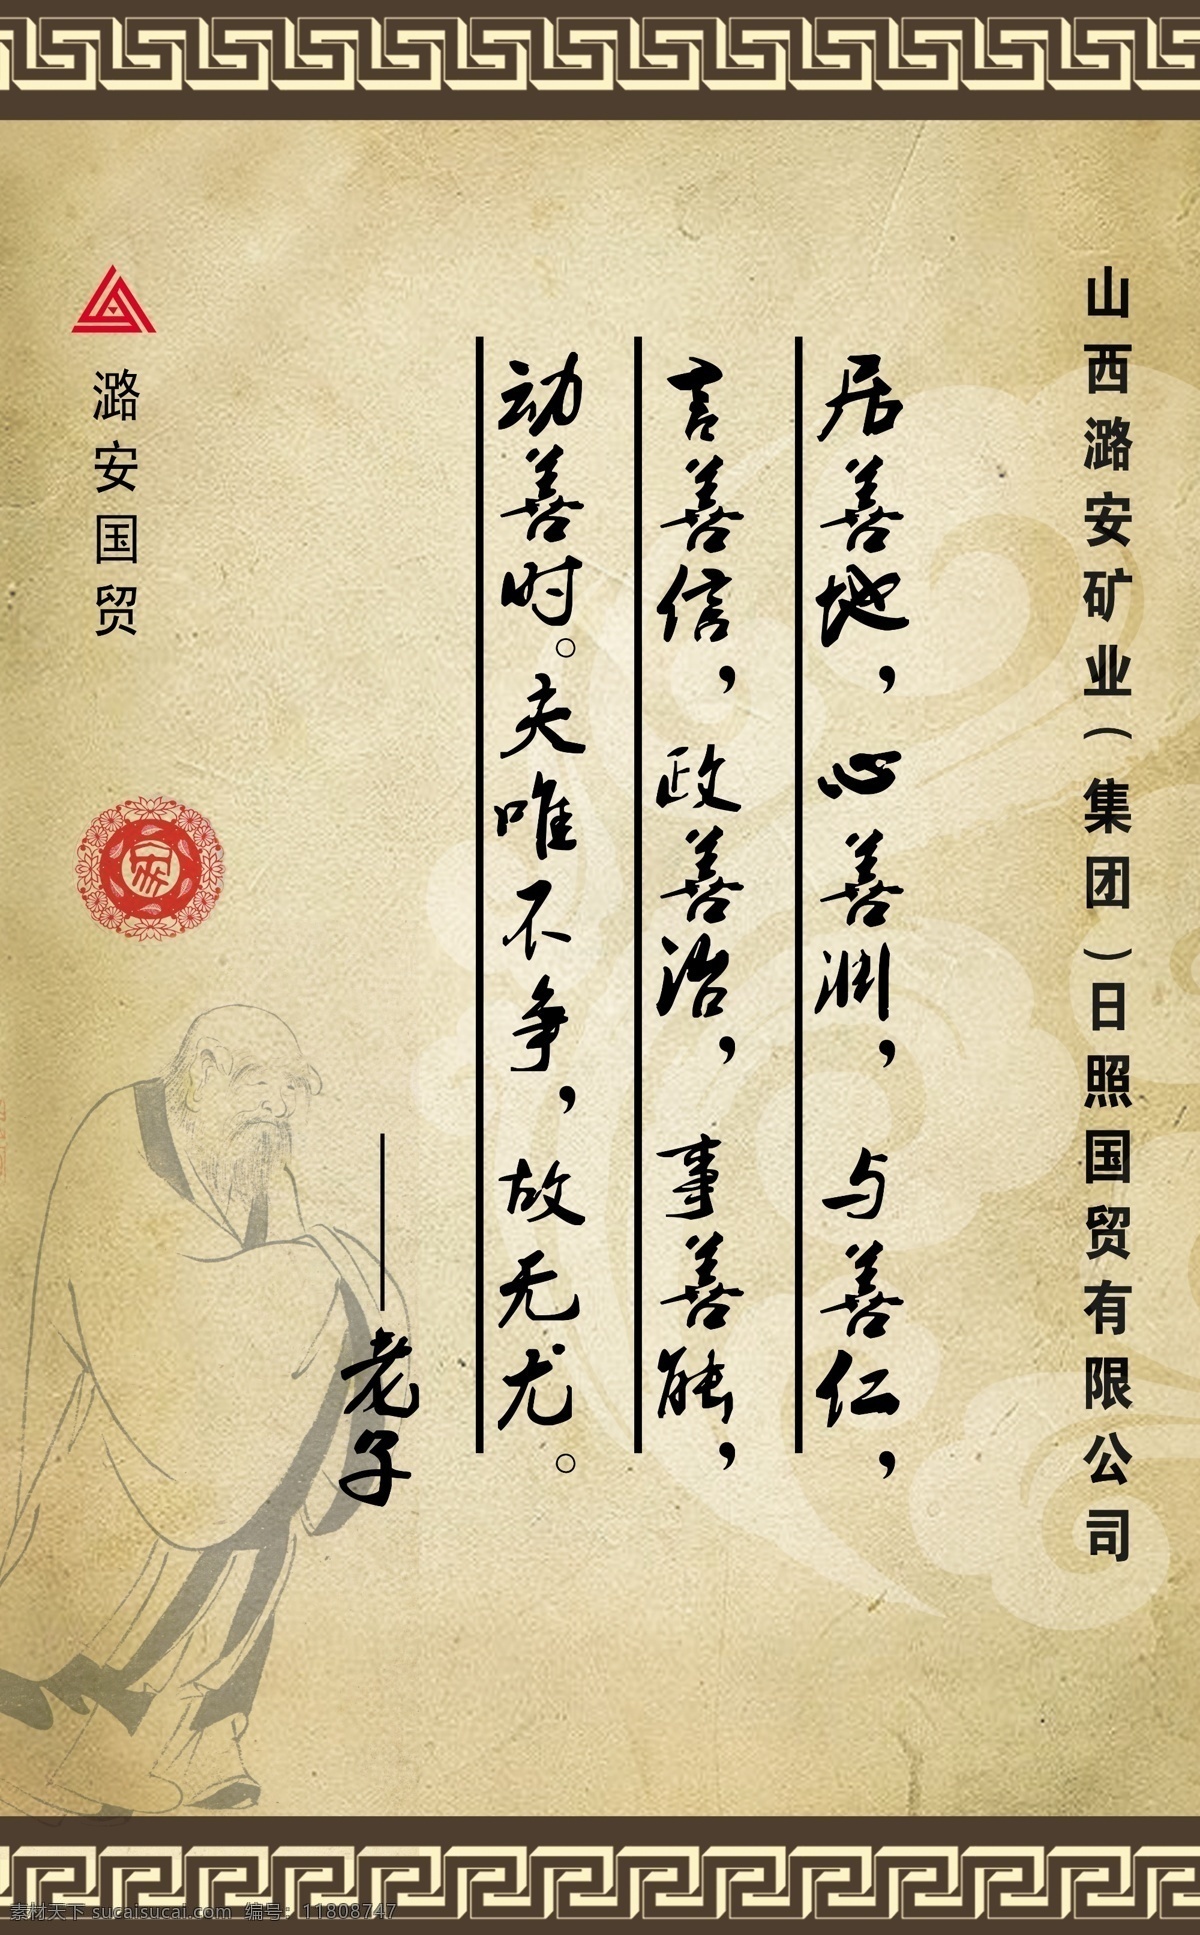 山西潞安矿业(集团)日照国贸有限公司
居善地，心善渊，与善仁，
言善信，政善治，事善能，
动善时。夫唯不争，故无尤。
——老子
潞安国贸
素材天下 sucaisucai.com 编号：11808747